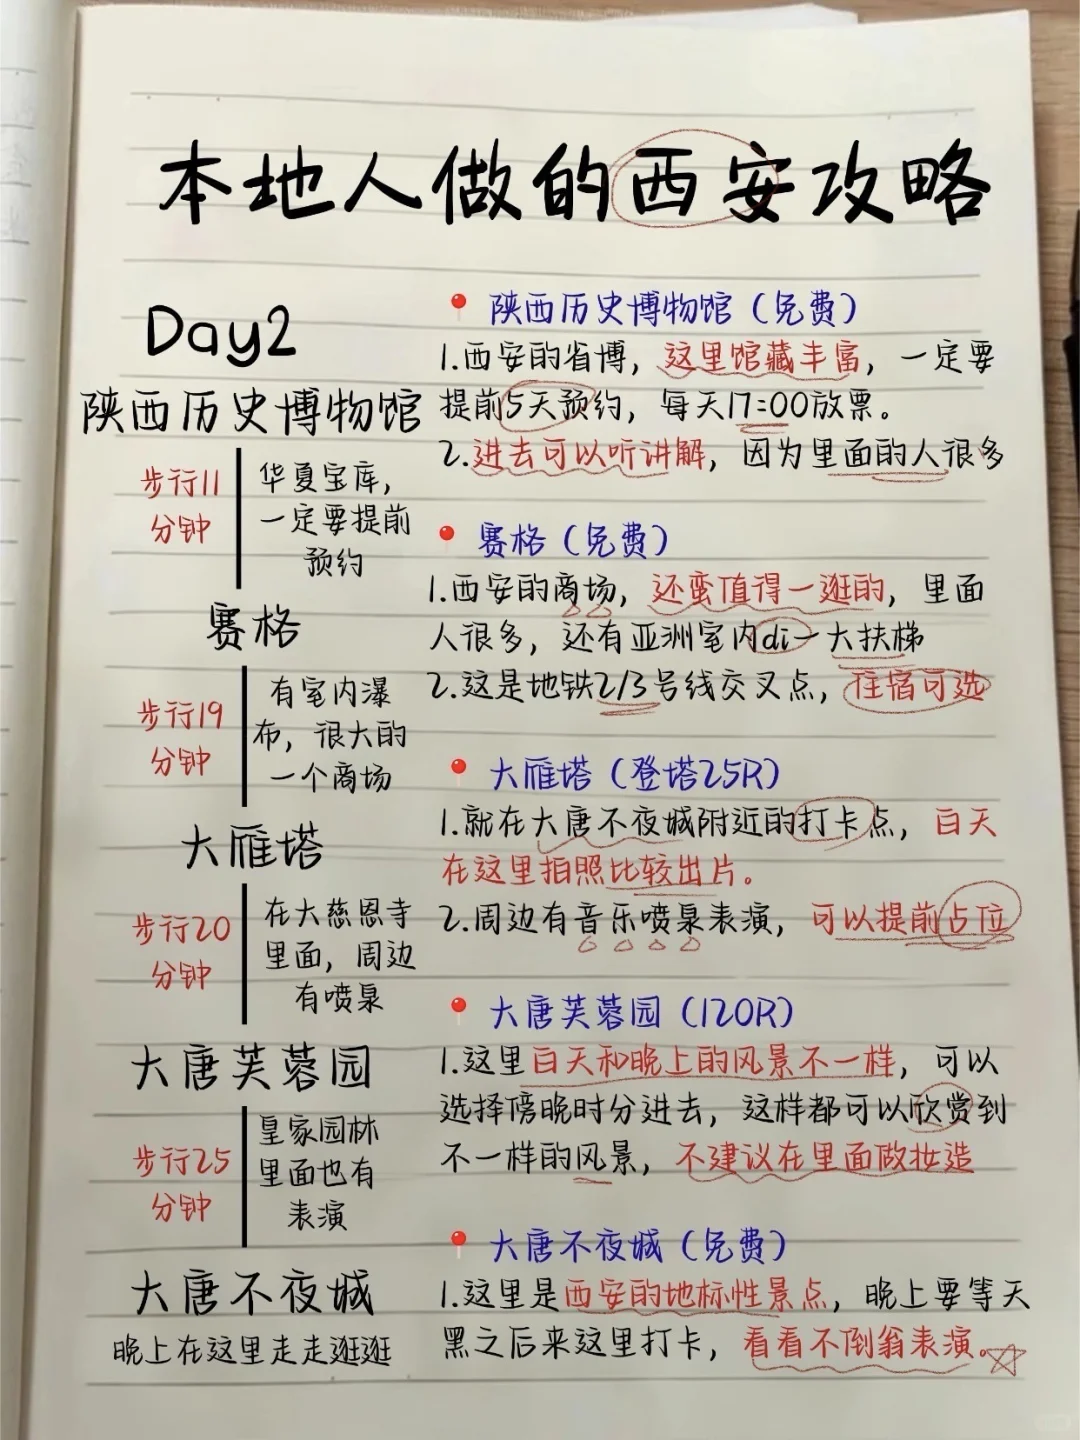 本地人做的西安攻略
Day2
陕西历史博物馆
步行11
分钟
华夏宝库，
一定要提前
预约
赛格
步行19
分钟
有室内瀑
布，很大的
一个商场
大雁塔
步行20
分钟
在大慈恩寺
里面，周边
有喷泉
大唐芙蓉园
步行25
分钟
皇家园林
里面也有
表演
大唐不夜城
晚上在这里走走逛逛
📍 陕西历史博物馆（免费）
1.西安的省博，这里馆藏丰富，一定要
提前5天预约，每天17:00放票。
2.进去可以听讲解，因为里面的人很多
📍 赛格（免费）
1.西安的商场，还蛮值得一逛的，里面
人很多，还有亚洲室内di一大扶梯
2.这是地铁2/3号线交叉点，住宿可选
📍 大雁塔（登塔25R）
1.就在大唐不夜城附近的打卡点，白天
在这里拍照比较出片。
2.周边有音乐喷泉表演，可以提前占位
📍 大唐芙蓉园（120R）
1.这里白天和晚上的风景不一样，可以
选择傍晚时分进去，这样都可以欣赏到
不一样的风景，不建议在里面做妆造
📍 大唐不夜城（免费）
1.这里是西安的地标性景点，晚上要等天
黑之后来这里打卡，看看不倒翁表演。